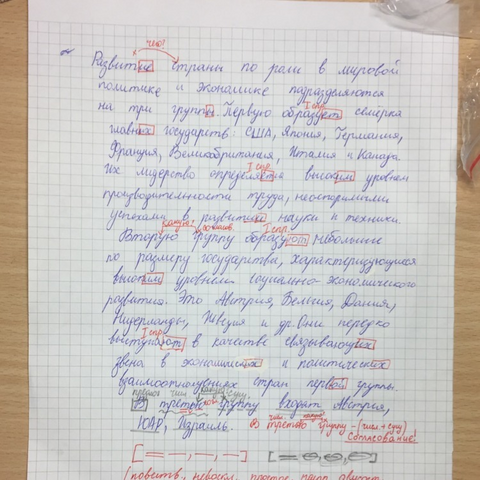 чего?
Развитие страны по роли в мировой
политике и экономике подразделяются
I спр.
на три группы. Первую образует семёрка
главных государств: США, Япония, Германия,
Франция, Великобритания, Италия и Канада.
I спр.
Их лидерство определяется высоким уровнем
производительности труда, неоспоримыми
успехами в развитии науки и техники.
какую? I спр.
Вторую группу образуют небольшие
по размеру государства, характеризующиеся
высоким уровнем социально-экономического
развития. Это Австрия, Бельгия, Дания,
Нидерланды, Швеция и др. Они нередко
I спр.
выступают в качестве связывающих
звена в экономических и политических
взаимоотношениях стран первой группы.
предлог числ. сущ.
В третью группу входят Австрия,
ЮАР, Израиль. третью группу - (числ + сущ)
Согласование